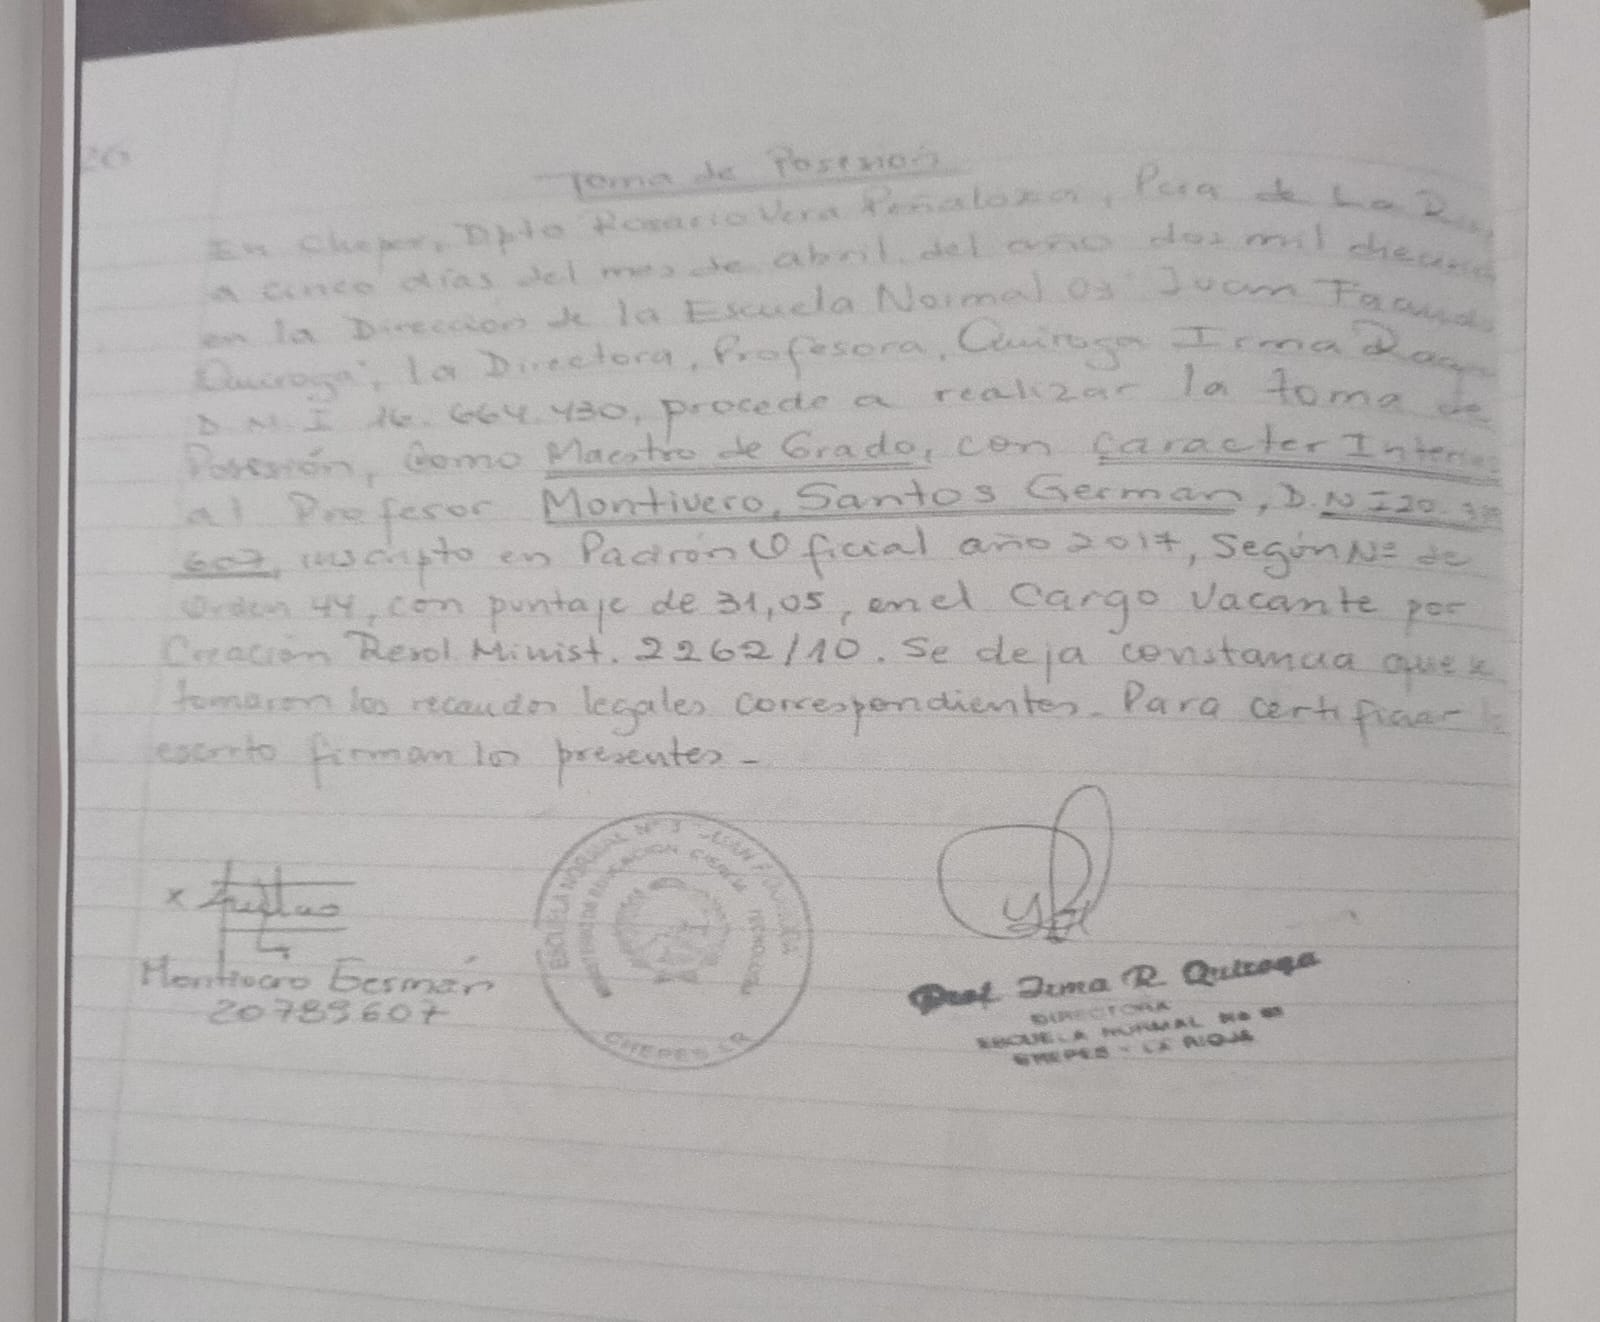 26
Toma de Posesión
En Chepes, Dpto Rosario Vera Peñaloza, Pcia de La R
a cinco días del mes de abril del año dos mil diecisie
en la Dirección de la Escuela Normal 03 "Juan Facundo
Quiroga", la Directora, Profesora, Quiroga Irma
D.N.I 16.664.430, procede a realizar la toma de
Posesión, Como Maestro de Grado, con caracter Interino
al Profesor Montivero, Santos German, D.N I 20.789
607, inscripto en Padrón Oficial año 2017, Según Nº de
Orden 44, con puntaje de 31,05, en el Cargo Vacante por
Creación Resol. Minist. 2262/10. Se deja constancia que se
tomaron los recaudos legales correspondientes. Para certificar lo
escrito firman los presentes-
x
Montivero German
20789607
ESCUELA NORMAL Nº 3 JUAN F. QUIROGA
MINISTERIO DE EDUCACION CIENCIA TECNOLOGIA
CHEPES LR
Prof. Irma R. Quiroga
DIRECTORA
ESCUELA NORMAL No 03
CHEPES - LA RIOJA